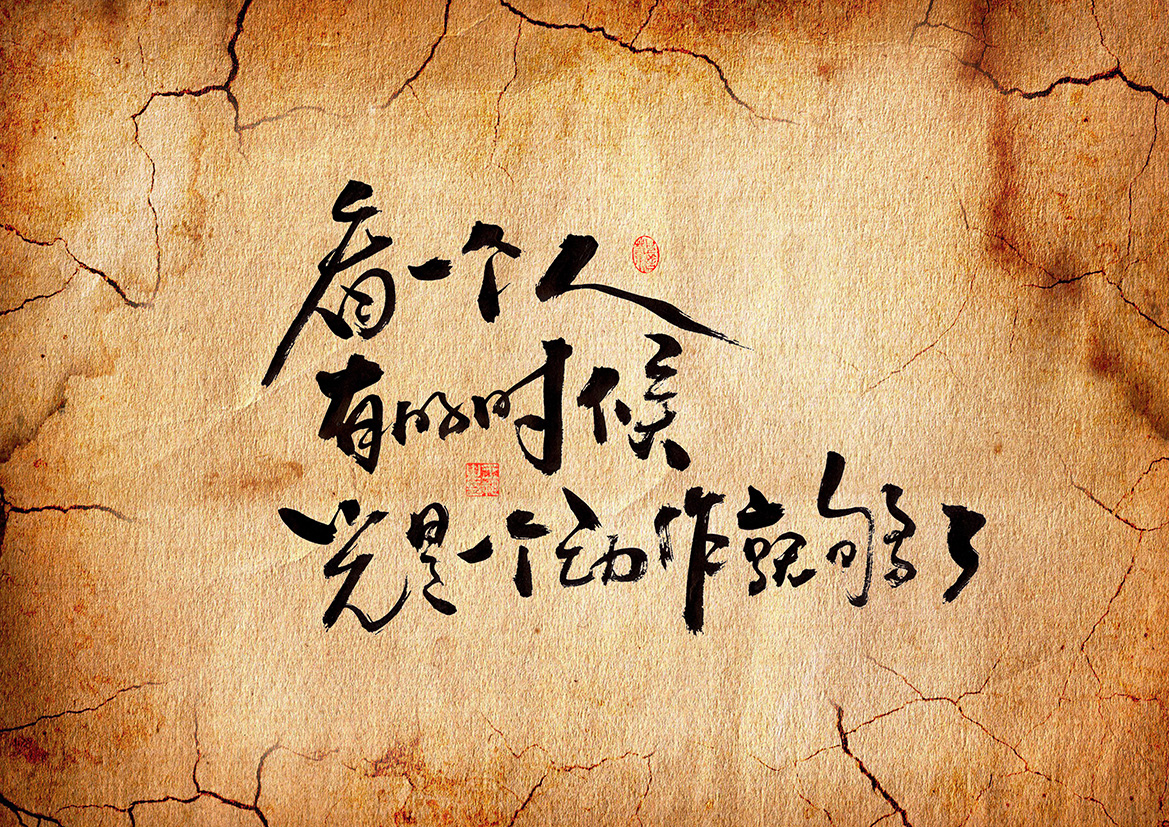 看一个人
有的时候
光是一个动作就够了